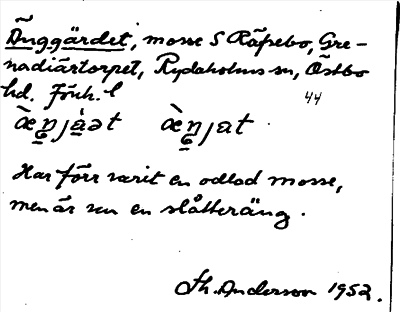 Änggärdet, mosse S Råsebo, Gre-
nadiärtorpet, Rydaholms sn, Östbo
hd. Jönk. l
44
æ̀ŋjàət æ̀ŋjat
Har förr varit en odlad mosse,
men är nu en slåtteräng.
Th. Anderson 1952.